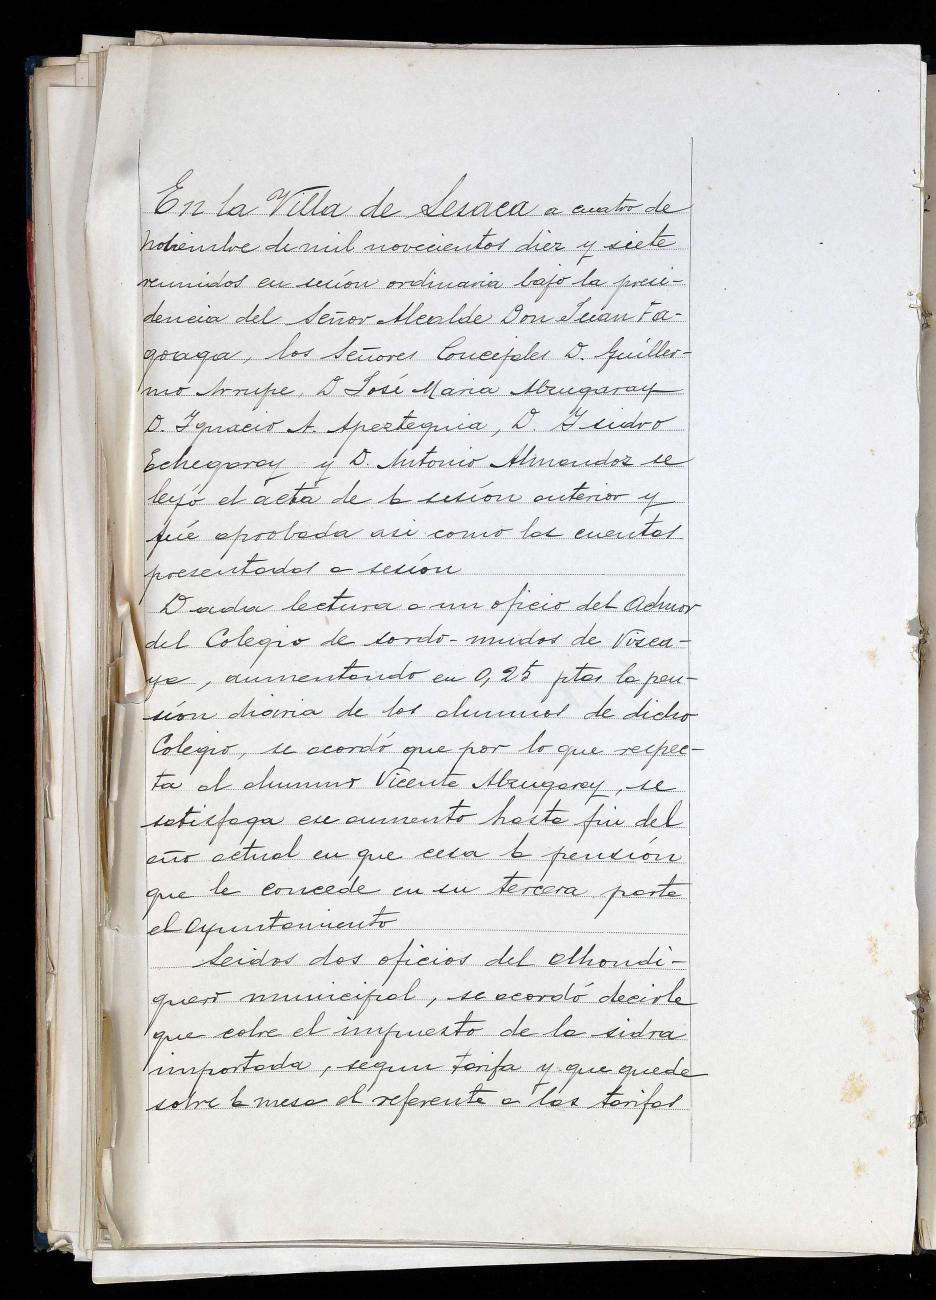 En la Villa de Lesaca a cuatro de
Nobiembre de mil novecientos diez y siete
reunidos en sesión ordinaria bajo la presi-
dencia del Señor Alcalde Don Juan Fa-
goaga, los Señores Concejales D. Guiller-
mo Arrupe, D José Maria Alzugaray
D. Ignacio A. Apezteguia, D. Isidro
Echegaray y D. Antonio Almandoz se
leyó el acta de la sesión anterior y
fué aprobada asi como las cuentas
presentadas a sesión
Dada lectura a un oficio del Admor
del Colegio de sordo-mudos de Vizca-
ya, aumentando en 0,25 ptas la pen-
sión diaria de los alumnos de dicho
Colegio, se acordó que por lo que respec-
ta al alumno Vicente Alzugaray, se
satisfaga ese aumento hasta fin del
año actual en que cesa la pensión
que le concede en su tercera parte
el Ayuntamiento
Leidos dos oficios del alhondi-
guero municipal, se acordó decirle
que cobre el impuesto de la sidra
importada, segun tarifa y que quede
sobre la mesa el referente a las tarifas